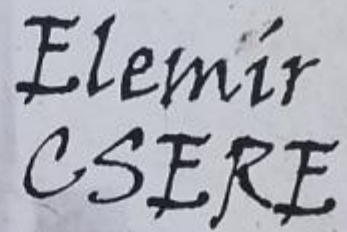 Elemír
CSERE